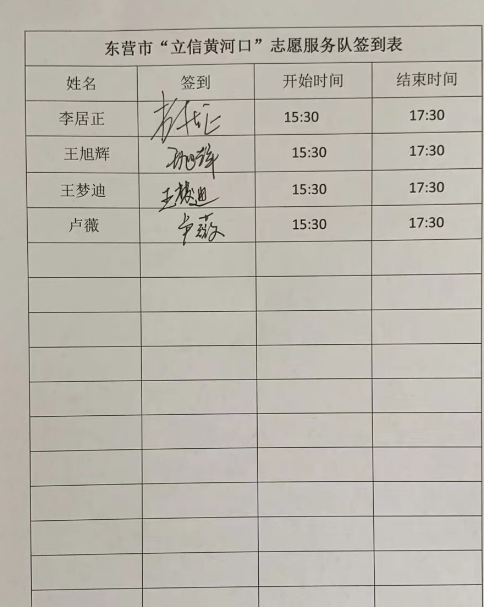 东营市“立信黄河口”志愿服务队签到表
姓名 签到 开始时间 结束时间
李居正 李居正 15:30 17:30
王旭辉 王旭辉 15:30 17:30
王梦迪 王梦迪 15:30 17:30
卢薇 卢薇 15:30 17:30